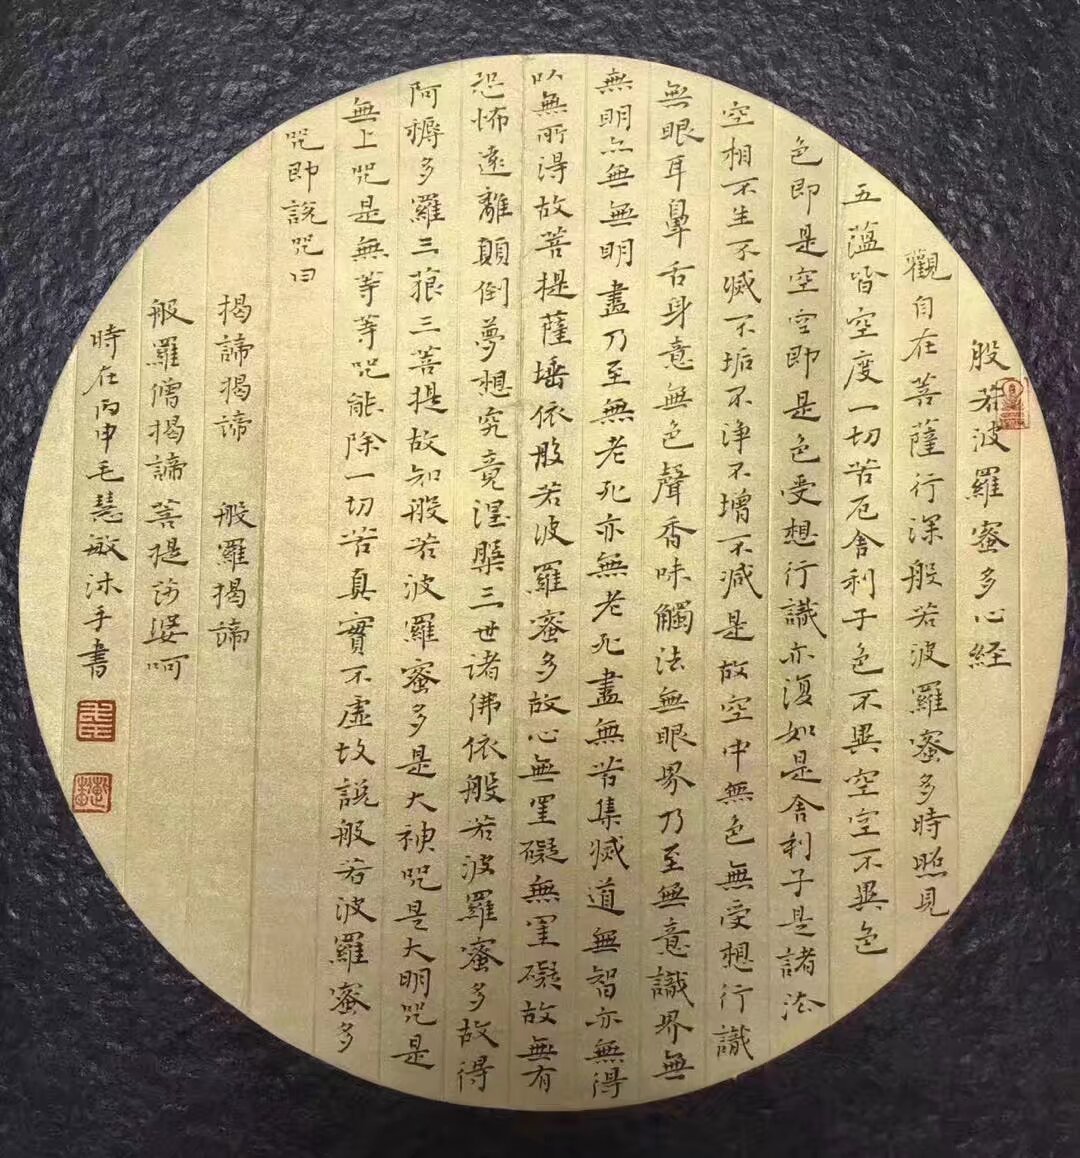 般若波羅蜜多心経
觀自在菩薩行深般若波羅蜜多時照見
五蘊皆空度一切苦厄舍利子色不異空空不異色
色即是空空即是色受想行識亦復如是舍利子是諸法
空相不生不滅不垢不淨不增不減是故空中無色無受想行識
無眼耳鼻舌身意無色聲香味觸法無眼界乃至無意識界無
無明亦無無明盡乃至無老死亦無老死盡無苦集滅道無智亦無得
以無所得故菩提薩埵依般若波羅蜜多故心無罣礙無罣礙故無有
恐怖遠離顛倒夢想究竟涅槃三世諸佛依般若波羅蜜多故得
阿耨多羅三藐三菩提故知般若波羅蜜多是大神咒是大明咒是
無上咒是無等等咒能除一切苦真實不虛故說般若波羅蜜多
咒即說咒曰
揭諦揭諦 般羅揭諦
般羅僧揭諦菩提莎婆呵
時在丙申毛慧敏沐手書